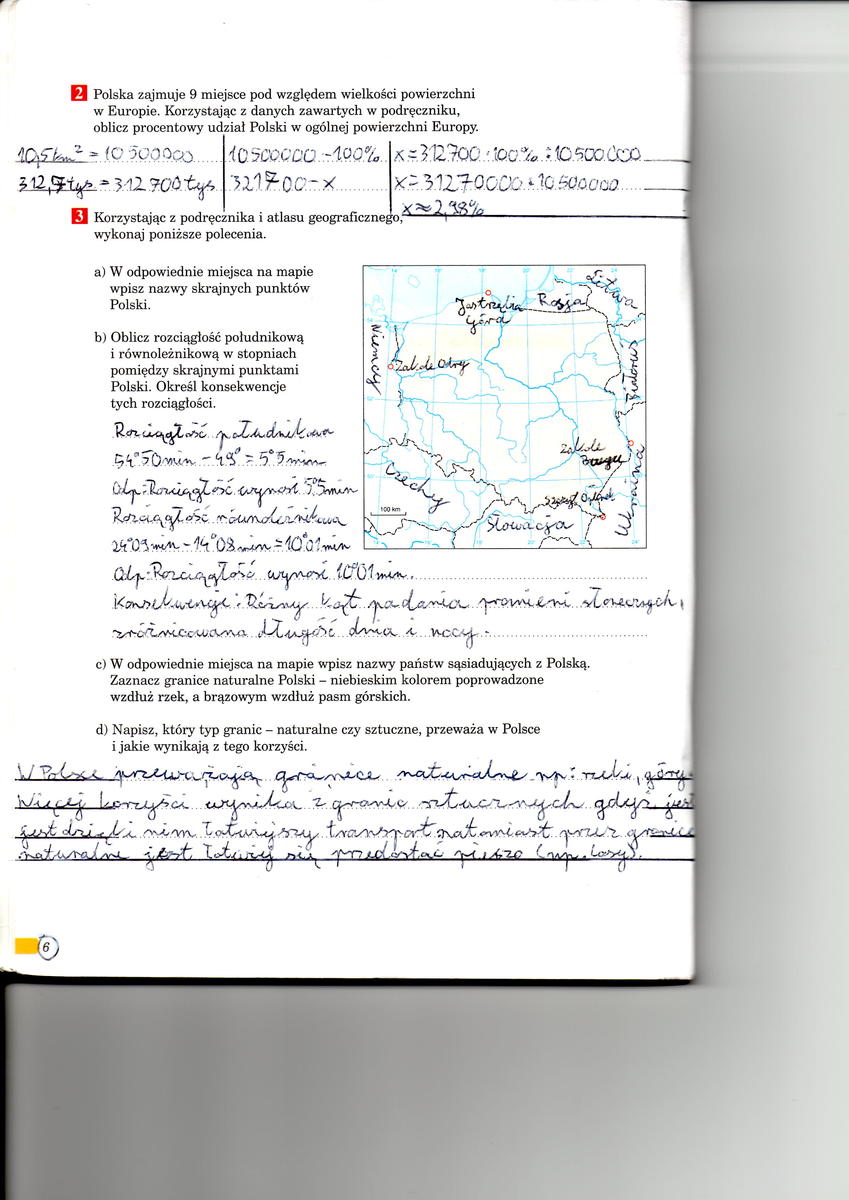 2 Polska zajmuje 9 miejsce pod względem wielkości powierzchni
w Europie. Korzystając z danych zawartych w podręczniku,
oblicz procentowy udział Polski w ogólnej powierzchni Europy.
10,5 km² = 10 500000 10500000 - 100% x = 312700 · 100% : 10 500 000
312,7 tys = 312 700 tys 321700 - x x = 31270000 : 10 500000
x ≈ 2,98%
3 Korzystając z podręcznika i atlasu geograficznego,
wykonaj poniższe polecenia.
a) W odpowiednie miejsca na mapie
wpisz nazwy skrajnych punktów
Polski.
b) Oblicz rozciągłość południkową
i równoleżnikową w stopniach
pomiędzy skrajnymi punktami
Polski. Określ konsekwencje
tych rozciągłości.
Rozciągłość południkowa
54°50min - 49° = 5°5min
Odp: Rozciągłość wynosi 5°5min
Rozciągłość równoleżnikowa
24°09min - 14°08min = 10°01min
Odp: Rozciągłość wynosi 10°01min.
Konsekwencje: Różny kąt padania promieni słonecznych,
zróżnicowana długość dnia i nocy.
Litwa
Rosja
Jastrzębia
Górd
Niemcy
Zakole Odry
Białoruś
Zakole
Bugu
Czechy
Ukraina
Słowacja
100 km
c) W odpowiednie miejsca na mapie wpisz nazwy państw sąsiadujących z Polską.
Zaznacz granice naturalne Polski – niebieskim kolorem poprowadzone
wzdłuż rzek, a brązowym wzdłuż pasm górskich.
d) Napisz, który typ granic – naturalne czy sztuczne, przeważa w Polsce
i jakie wynikają z tego korzyści.
W Polsce przeważają granice naturalne np: rzeki, góry
Więcej korzyści wynika z granic sztucznych gdyż jest
jest dzięki nim łatwiejszy transport natomiast przez granice
naturalne jest łatwiej się przedostać pieszo (np. lasy).
6